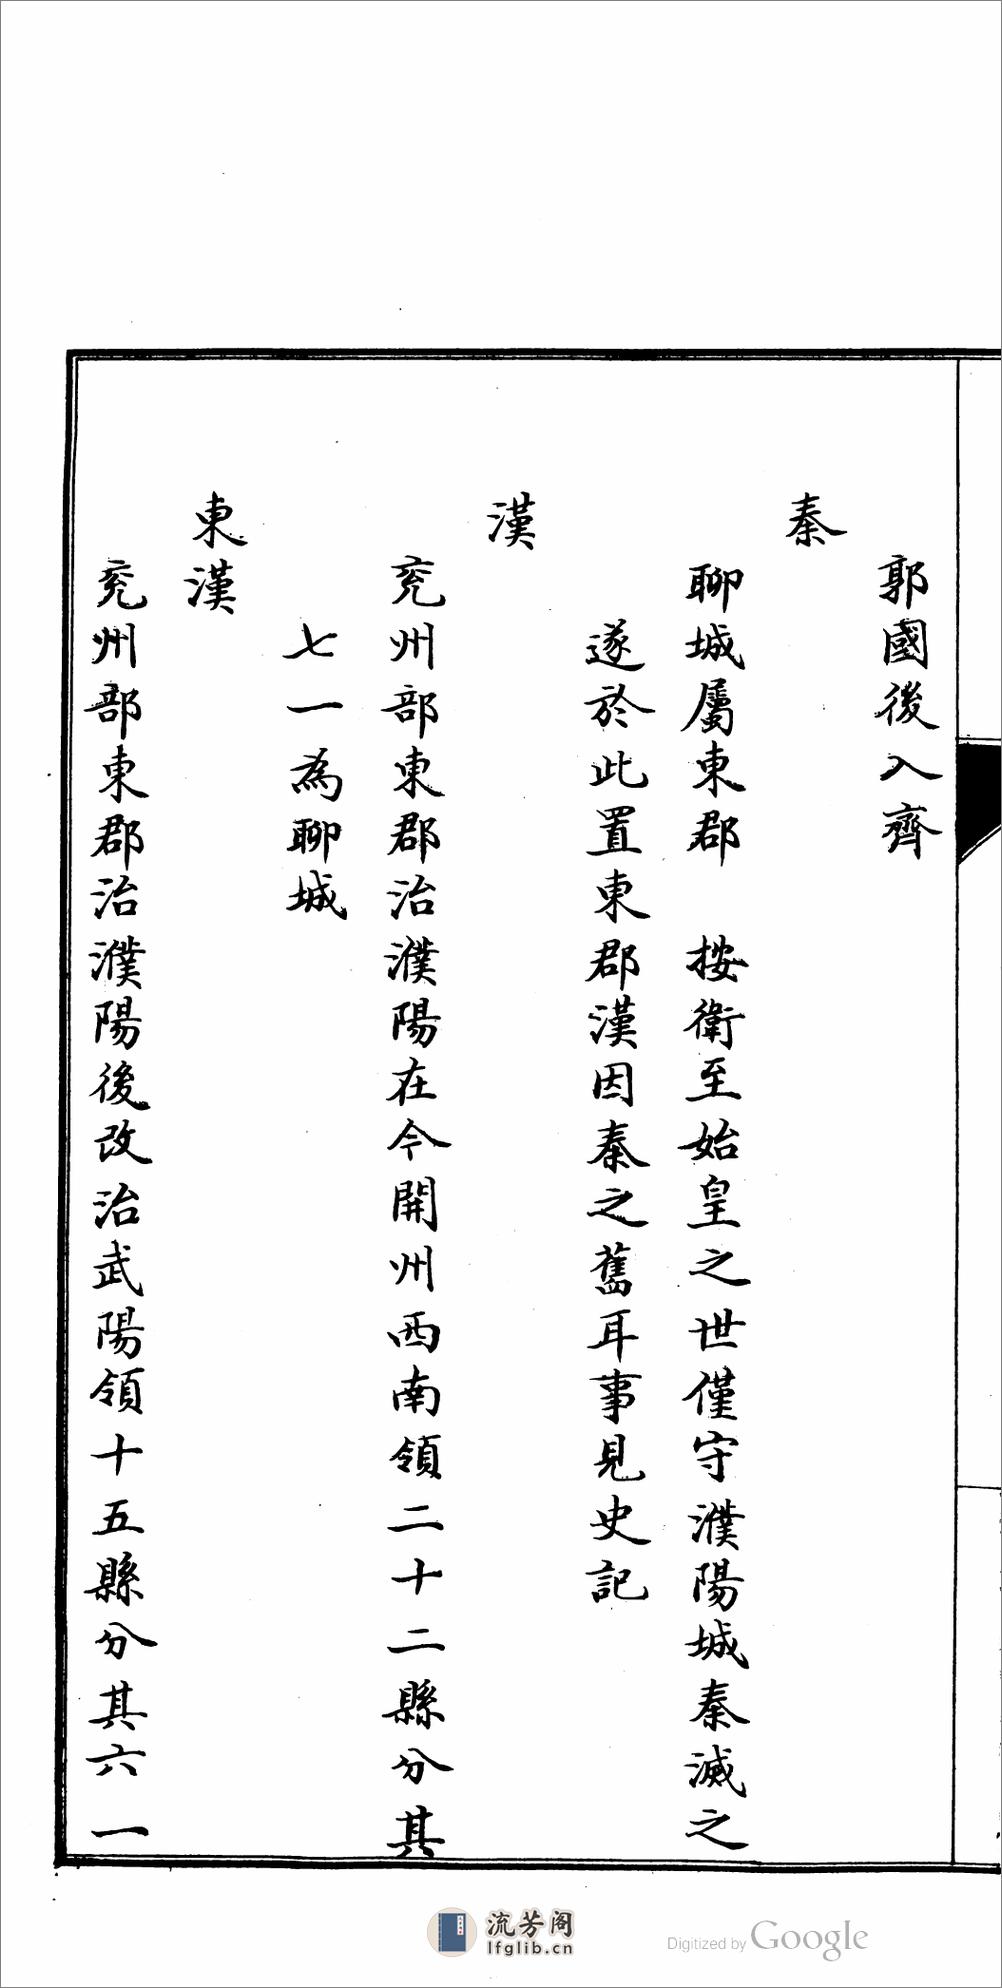 郭國後入齊
秦
聊城屬東郡　按衛至始皇之世僅守濮陽城秦滅之
遂於此置東郡漢因秦之舊耳事見史記
漢
兖州部東郡治濮陽在今開州西南領二十二縣分其
七一為聊城
東漢
兖州部東郡治濮陽後改治武陽領十五縣分其六一
流芳阁
lfglib.cn
Digitized by Google